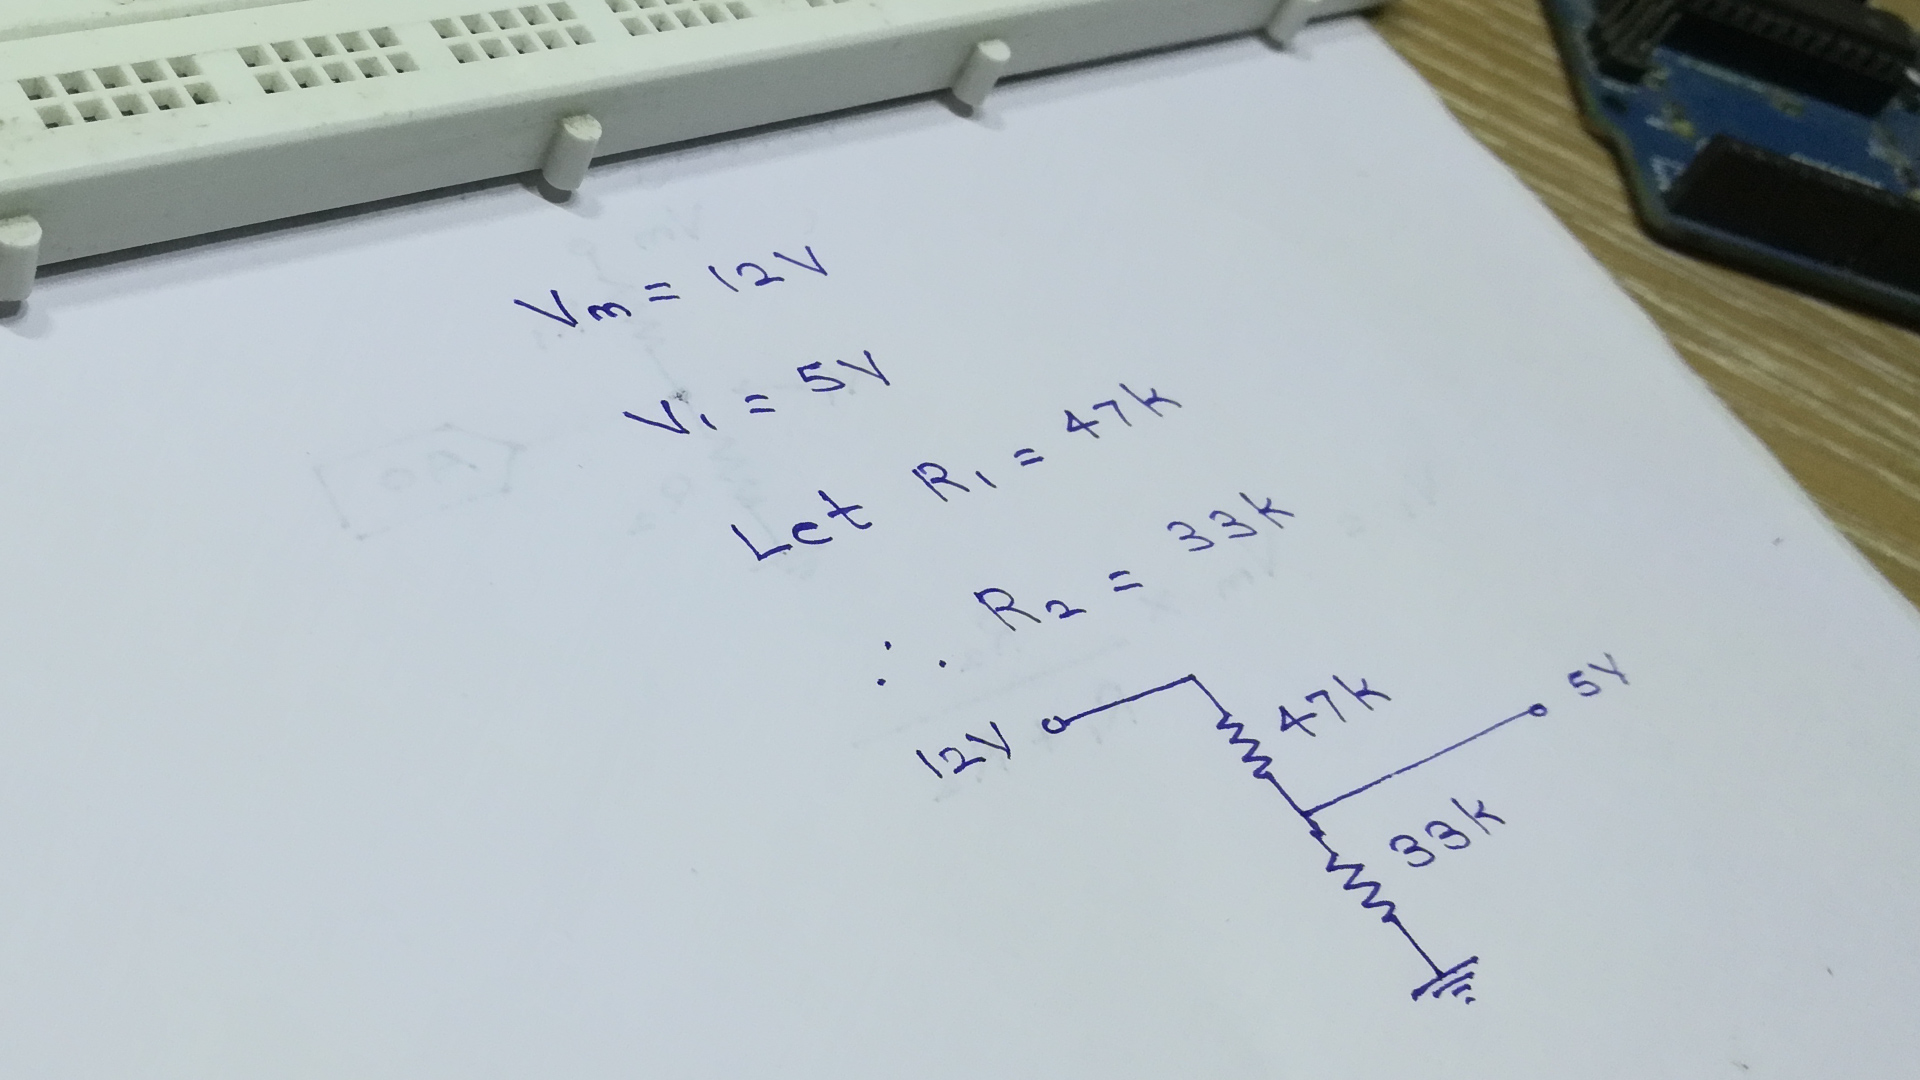 Vm = 12V
V1 = 5V
Let R1 = 47k
∴ R2 = 33k
12V
47k
5V
33k